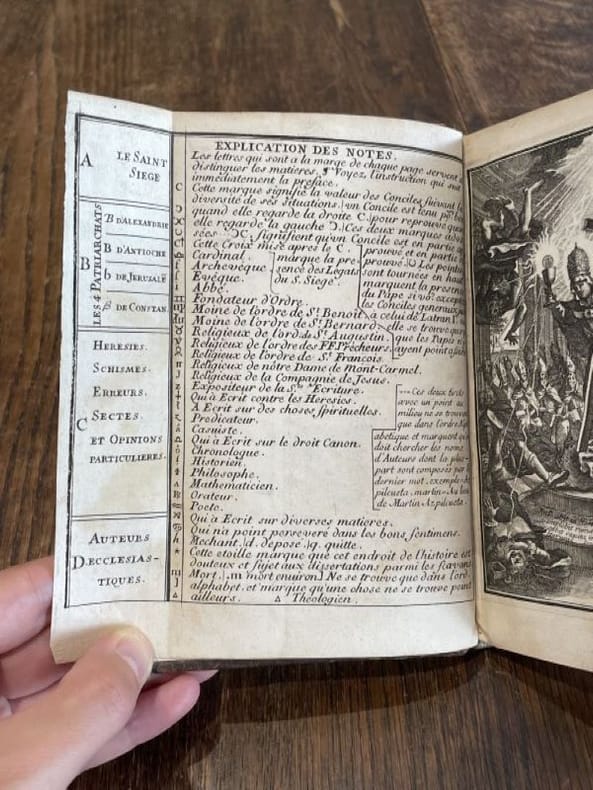 A LE SAINT
SIEGE
LES 4 PATRIARCHATS
B
B D'ALEXANDRIE
B D'ANTIOCHE
b DE JERUSALÉ
β DE CONSTAN.
HERESIES.
SCHISMES.
ERREURS.
C SECTES
ET OPINIONS
PARTICULIERES.
AUTEURS
D ECCLESIAS-
TIQUES.
EXPLICATION DES NOTES.
Les lettres qui sont a la marge de chaque page servent
distinguer les matieres. Voyez, l'instruction qui suit
immediatement la preface.
C Cette marque signifie la valeur des Conciles suivant la
diversité de ses situations. un Concile est tenu
quand elle regarde la droite C pour reprouvé
elle regarde la gauche Ↄ Ces deux marques
sées ƆC, signifient qu'un Concile est en partie
Cette Croix mise après le C.
Cardinal.
Archevêque
Evêque.
Abbé.
marque la pre-
sence des Légats
du S. Siege.
prouvé et en partie
prouvé. Les pointes
sont tournées en haut
marquent la presence
du Pape si vo' excep
les Conciles generaux
à celui de Latran 1er
elle se trouve
que les Papes
ayent point
Fondateur d'Ordre.
Moine de l'ordre de St. Benoît
Moine de l'ordre de St. Bernard
Religieux de l'ord. de St. Augustin.
Religieux de l'ordre des FF. Prêcheurs.
Religieux de l'ordre de St. François
Religieux de nôtre Dame de Mont-Carmel.
Religieux de la Compagnie de Jesus.
Expositeur de la Ste. Ecriture.
Qui à Ecrit contre les Heresies.
À Ecrit sur des choses spirituelles.
Predicateur.
Casuiste.
Qui à Ecrit sur le droit Canon.
Chronologue.
Historien.
Philosophe.
Mathematicien.
Orateur.
Poete.
Ces deux
avec un point au
milieu ne se trouve
que dans l'ordre
abetique et marquent
doit chercher les noms
d'Auteurs dont la plus-
part sont composés par
dernier mot. exemple
pilcueta, martin Au lieu
de Martin Azpilcueta.
Qui à Ecrit sur diverses matieres.
Qui n'a point perseveré dans les bons sentimens.
Mechant. d. deposé. q. quitte.
* Cette etoille marque que cet endroit de l'histoire est
douteux et sujet aux dissertations parmi les sçavans
m Mort. .m mort environ. ] Ne se trouve que dans l'ord.
alphabet. et marque qu'une chose ne se trouve point
ailleurs. Δ Theologien.